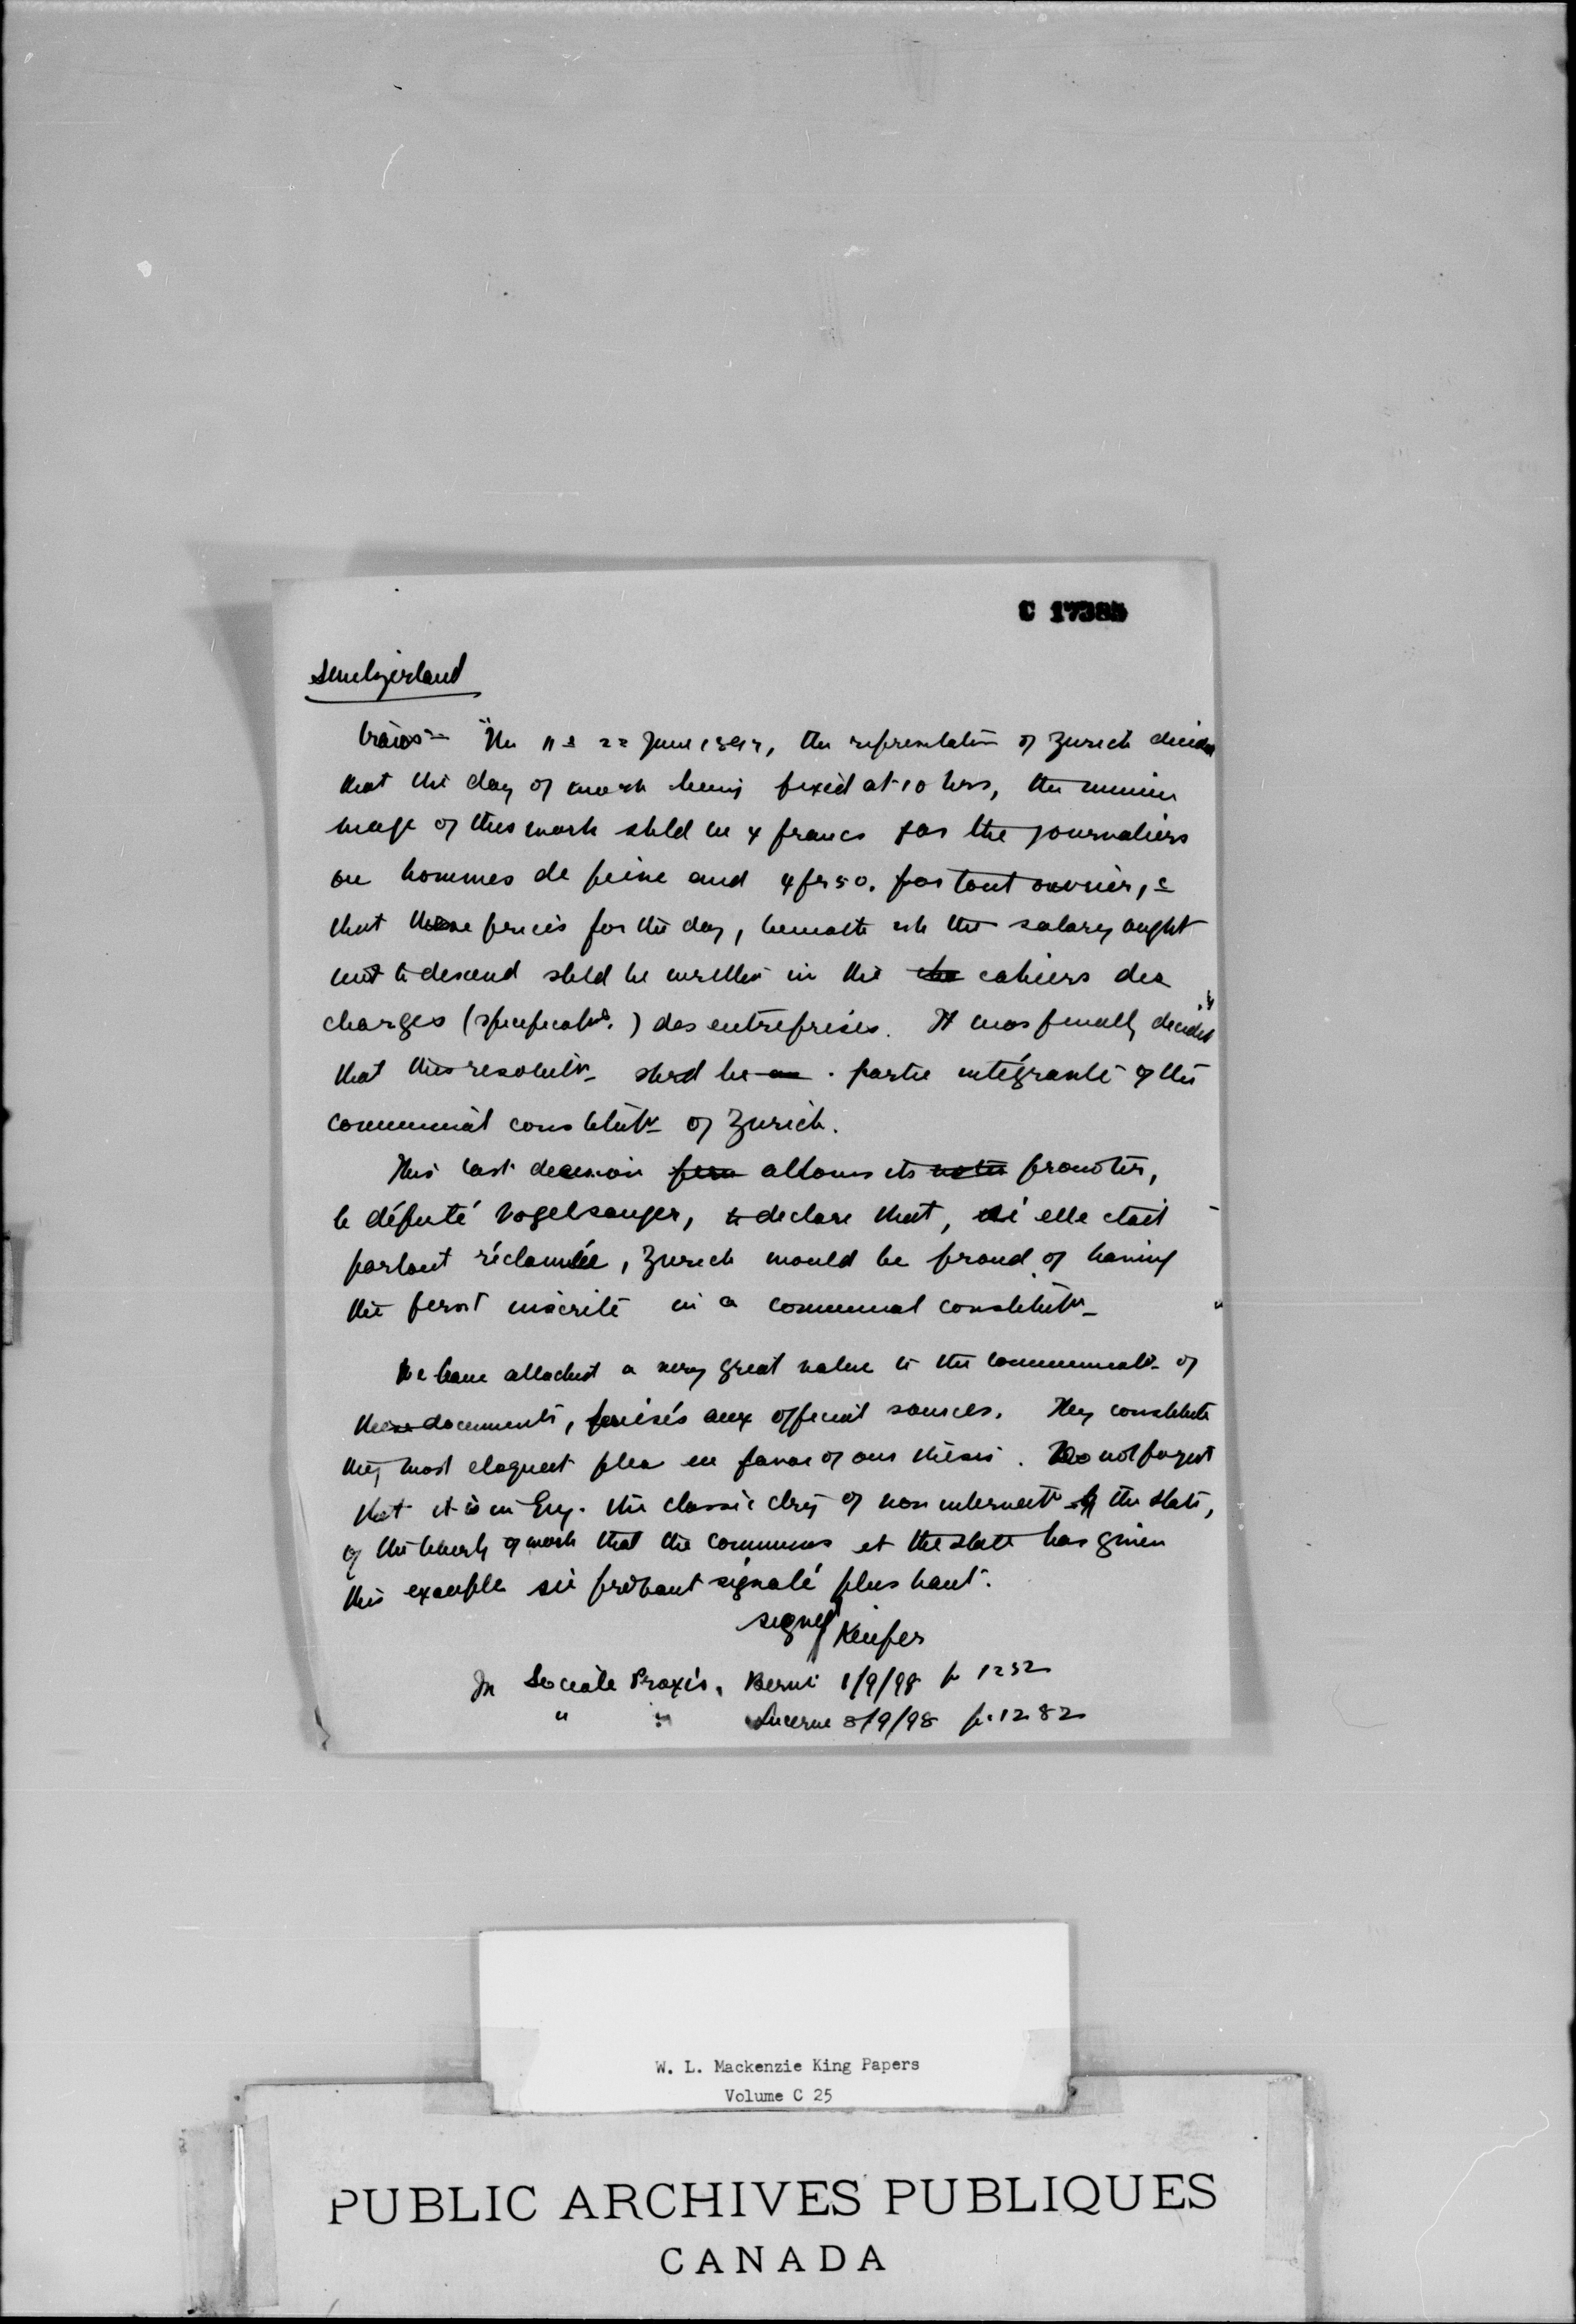 C 17385
Switzerland
"The 11 & 22 June 1897, the representation of Zurich decided
that the day of work being fixed at 10 hrs, the minim
wage of this work shld be 4 francs for the journaliers
ou hommes de peine and 4 fr 50. for tout ouvrier, &
that these prices for the day, beneath wh the salary ought
not to descend shld be written in the cahiers des
charges (specificatns.) des entreprises. It was finally decided
that this resolutn shld be partie intégrante of the
communal constitutn of Zurich.
This last decision allows its promoter,
le député Vogelsanger, to declare that, si elle était
partout réclamée, Zurich would be proud of having
the first inscrite in a communal constitutn
We have attached a very great value to the communicatn of
these documents, puisés aux official sources. They constitute
the most eloquent plea in favor of our thesis. Do not forget
that it is in Eng. the classic cntry of non interventn by the state,
of the of work that the communes et the state has given
this example si probant signalé plus haut.
signed Keufer
In Sociale Praxis, Berne 1/9/98 p 1252
" " Lucerne 8/9/98 p. 1282
W. L. Mackenzie King Papers
Volume C 25
PUBLIC ARCHIVES PUBLIQUES
CANADA